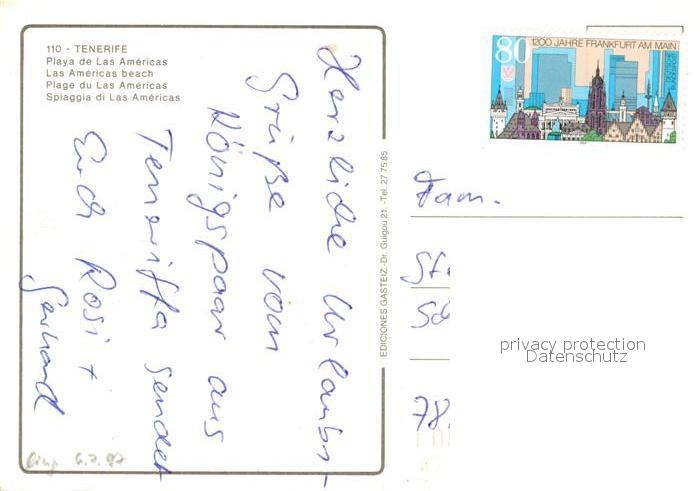 110 - TENERIFE
Playa de Las Américas
Las Américas beach
Plage du Las Américas
Spiaggia di Las Américas
Herzliche Urlaubs-
Grüße vom
Königspaar aus
Teneriffa sendet
Euch Rosi +
Gerhard
6.7.97
EDICIONES GASTEIZ.-Dr. Guigou 21.-Tel. 27 75 85
80
1200 JAHRE FRANKFURT AM MAIN
DEUTSCHE BUNDESPOST
Fam.
78.
privacy protection
Datenschutz